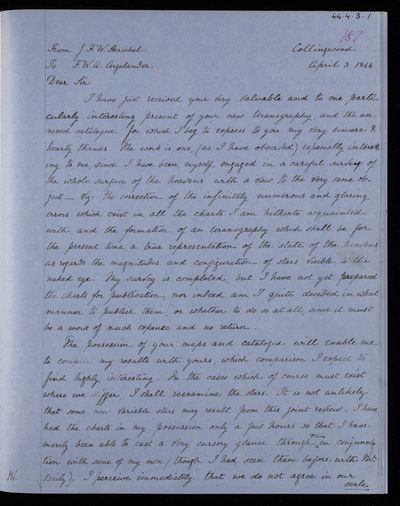 44.4.3.1
187
From J. F. W. Herschel Collingwood
To F. W. A. Argelander. April 3. 1844
Dear Sir
I have just received your very valuable and to me parti
cularly interesting present of your new Uranography, and the an-
nexed catalogue for which I beg to express to you my very sincere &
hearty thanks. The work is one (as I have observed) especially interest
ing to me, since I have been myself engaged in a careful survey of
the whole surface of the heavens with a view to the very same ob-
ject – Viz: the correction of the infinitely numerous and glaring
errors which exist in all the charts I am hitherto acquainted
with and the formation of an uranography which shall be for
the present time a true representation of the state of the heavens
as regards the magnitudes and configuration of stars visible to the
naked eye. My survey is completed, but I have not yet prepared
the charts for publication, nor indeed am I quite decided in what
manner to publish them or whether to do so at all, since it must
be a work of much expence and no return.
The possession of your maps and catalogue will enable me
to compare my results with yours, which comparison I expect to
find highly interesting. In the cases which of course must exist
where we differ I shall reexamine the stars. It is not unlikely
that some new variable stars may result from this joint review. I have
had the charts in my possession only a few hours so that I have
merely been able to cast a very cursory glance through them in conjunc-
tion with some of my own (though I had seen them before with Mr.
Baily). I perceive immediately that we do not agree in our
scale